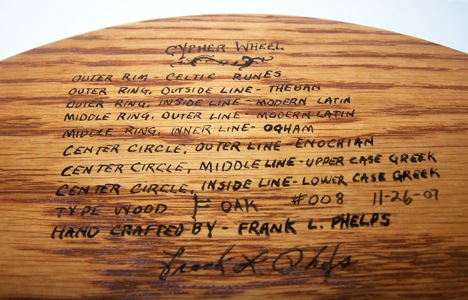 CYPHER WHEEL
OUTER RIM - CELTIC RUNES
OUTER RING, OUTSIDE LINE - THEBAN
OUTER RING, INSIDE LINE - MODERN LATIN
MIDDLE RING, OUTER LINE - MODERN LATIN
MIDDLE RING, INNER LINE - OGHAM
CENTER CIRCLE, OUTER LINE - ENOCHIAN
CENTER CIRCLE, MIDDLE LINE - UPPER CASE GREEK
CENTER CIRCLE, INSIDE LINE - LOWER CASE GREEK
TYPE WOOD OAK #008 11-26-07
HAND CRAFTED BY - FRANK L. PHELPS
Frank L Phelps